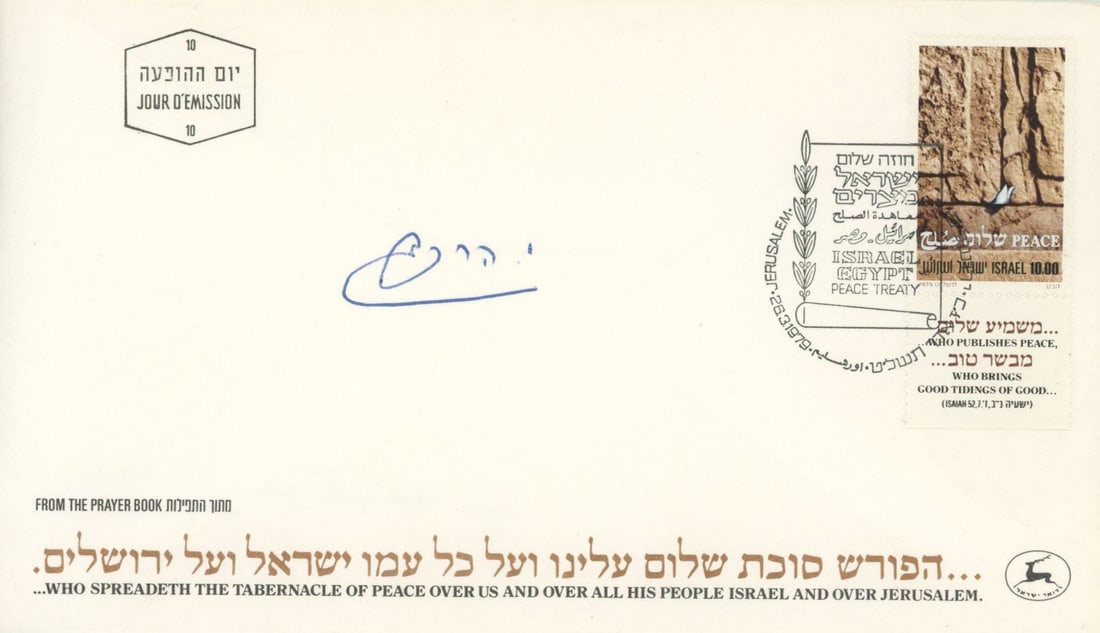 10
יום ההופעה
JOUR D'EMISSION
10
חוזה שלום
ישראל
מצרים
معاهدة الصلح
ISRAEL
EGYPT
PEACE TREATY
JERUSALEM · 26.3.1979 ·
שלום صلح PEACE
ישראל ISRAEL 10.00
משמיע שלום...
...WHO PUBLISHES PEACE,
מבשר טוב...
WHO BRINGS
GOOD TIDINGS OF GOOD...
(ISAIAH 52,7 ישעיה נ"ב, ז')
FROM THE PRAYER BOOK מתוך התפילות
...הפורש סוכת שלום עלינו ועל כל עמו ישראל ועל ירושלים.
...WHO SPREADETH THE TABERNACLE OF PEACE OVER US AND OVER ALL HIS PEOPLE ISRAEL AND OVER JERUSALEM.
דואר ישראל